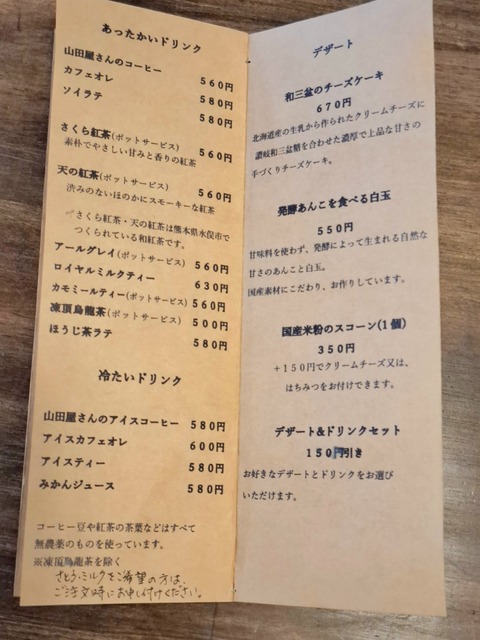 あったかいドリンク
山田屋さんのコーヒー 560円
カフェオレ 580円
ソイラテ 580円
さくら紅茶(ポットサービス) 560円
素朴でやさしい甘みと香りの紅茶
天の紅茶(ポットサービス) 560円
渋みのないほのかにスモーキーな紅茶
さくら紅茶・天の紅茶は熊本県水俣市で
つくられている和紅茶です。
アールグレイ(ポットサービス) 560円
ロイヤルミルクティー 630円
カモミールティー(ポットサービス) 560円
凍頂烏龍茶(ポットサービス) 500円
ほうじ茶ラテ 580円
冷たいドリンク
山田屋さんのアイスコーヒー 580円
アイスカフェオレ 600円
アイスティー 580円
みかんジュース 580円
コーヒー豆や紅茶の茶葉などはすべて
無農薬のものを使っています。
※凍頂烏龍茶を除く
さとう・ミルクをご希望の方は、
ご注文時にお申し付けください。
デザート
和三盆のチーズケーキ
670円
北海道産の生乳から作られたクリームチーズに
讃岐和三盆糖を合わせた濃厚で上品な甘さの
手づくりチーズケーキ。
発酵あんこを食べる白玉
550円
甘味料を使わず、発酵によって生まれる自然な
甘さのあんこと白玉。
国産素材にこだわり、お作りしています。
国産米粉のスコーン(1個)
350円
+150円でクリームチーズ又は、
はちみつをお付けできます。
デザート&ドリンクセット
150円引き
お好きなデザートとドリンクをお選び
いただけます。